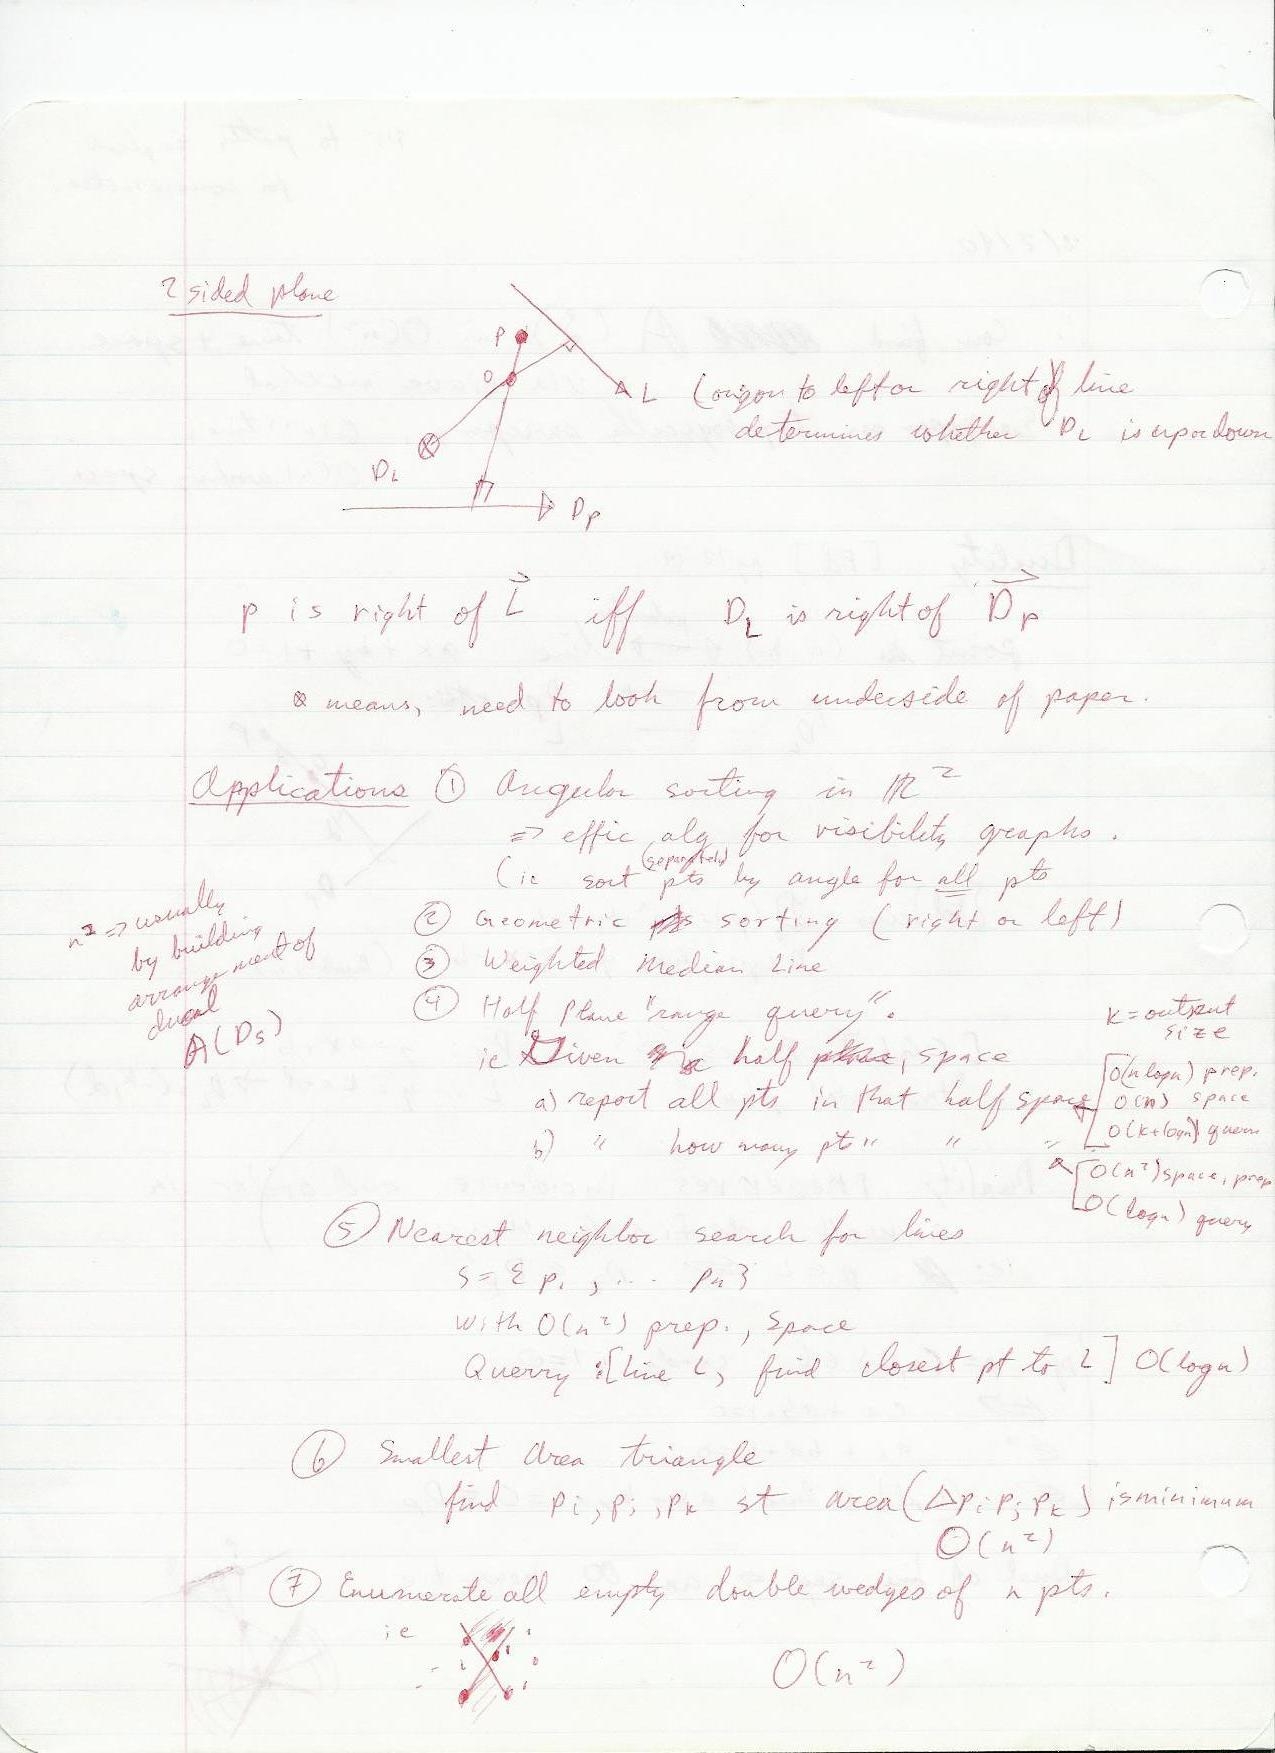 2 sided plane
P
O
L (origon to left or right of line
determines whether D_L is up or down
D_L
D_P
P is right of L⃗ iff D_L is right of D⃗_P
⊗ means, need to look from underside of paper.
Applications ① Angular sorting in ℝ²
=> effic alg for visibility graphs.
(separately)
(ie sort pts by angle for all pts
② Geometric sorting (right or left)
③ Weighted Median Line
④ Half Plane "range query".
ie Given half space
a) report all pts in that half space
b) " how many pts " " "
k = output
size
O(n log n) prep.
O(n) space
O(k+logn) query
O(n²) space, prep
O(logn) query
n² => usually
by building
arrangement of
dual
A(D_S)
⑤ Nearest neighbor search for lines
S = { p₁, ... pₙ }
with O(n²) prep., space
Querry : [line L, find closest pt to L] O(logn)
⑥ Smallest area triangle
find Pi, Pj, Pk st area(△PiPjPk) is minimum
O(n²)
⑦ Enumerate all empty double wedges of n pts.
ie
O(n²)